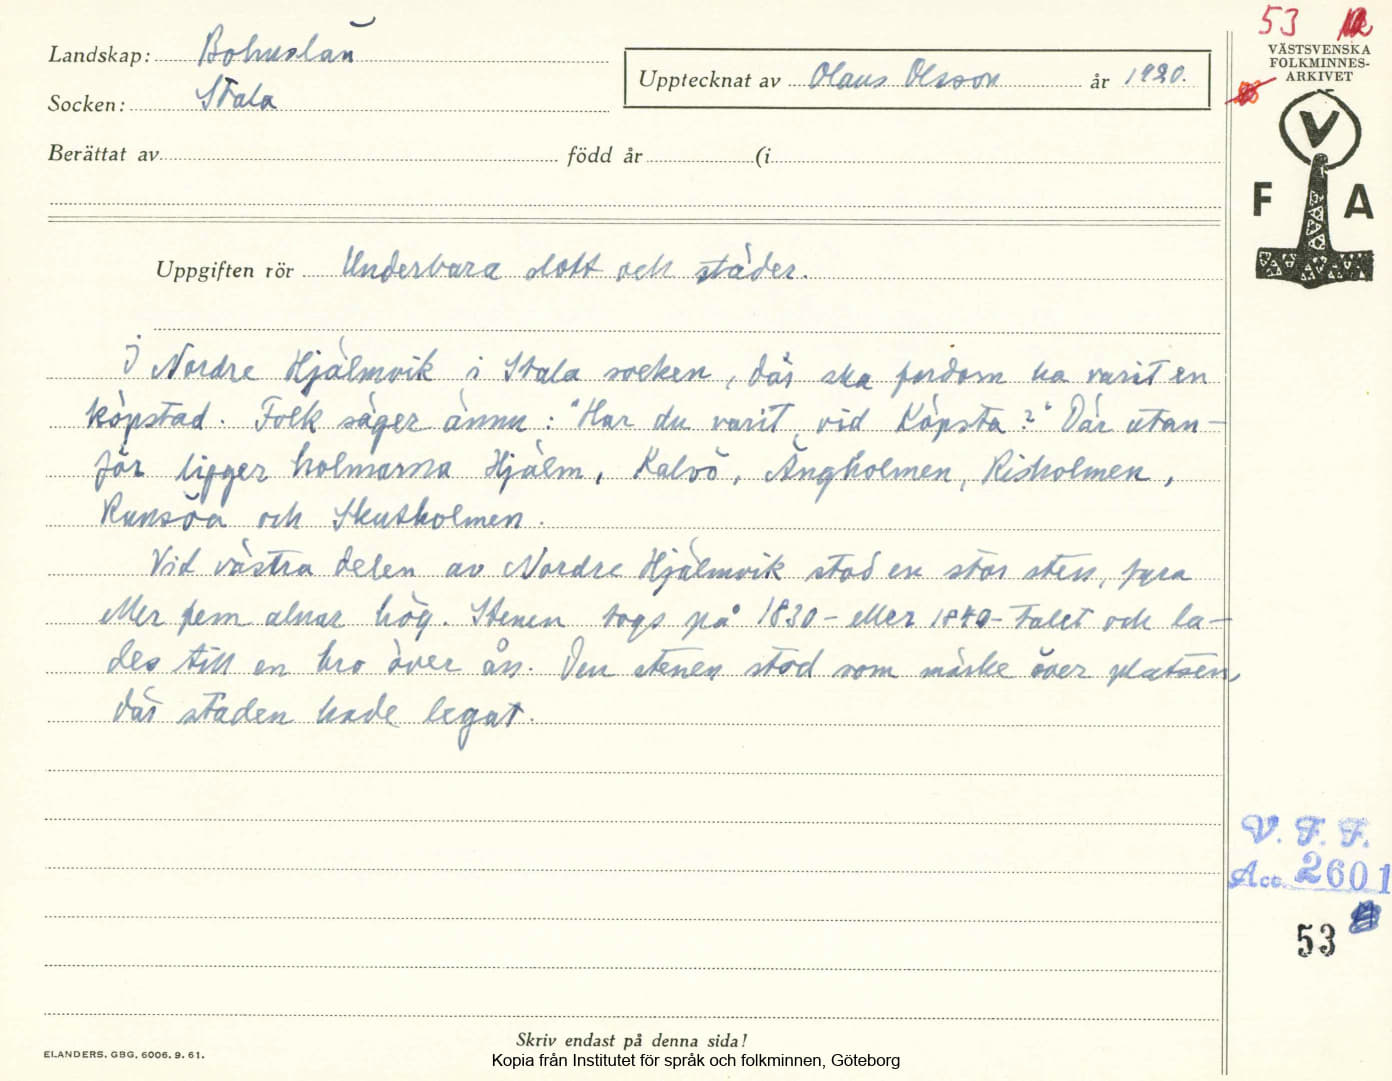 53
VÄSTSVENSKA
FOLKMINNES-
ARKIVET
V
F A
Landskap: Bohuslän
Socken: Stala
Upptecknat av Olaus Olsson år 1920.
Berättat av född år (i
Uppgiften rör Underbara slott och städer.
I Nordre Hjälmvik i Stala socken, där ska fordom ha varit en
köpstad. Folk säger ännu: "Har du varit vid Köpsta?" Där utan-
för ligger holmarna Hjälm, Kalvö, Ängholmen, Risholmen,
Runsöa och Skutholmen.
Vid västra delen av Nordre Hjälmvik stod en stor sten, fyra
eller fem alnar hög. Stenen togs på 1830- eller 1840-talet och la-
des till en bro över ån. Den stenen stod som märke över platsen,
där staden hade legat.
V. F. F.
Acc. 2601
53
Skriv endast på denna sida!
ELANDERS, GBG, 6006. 9. 61.
Kopia från Institutet för språk och folkminnen, Göteborg